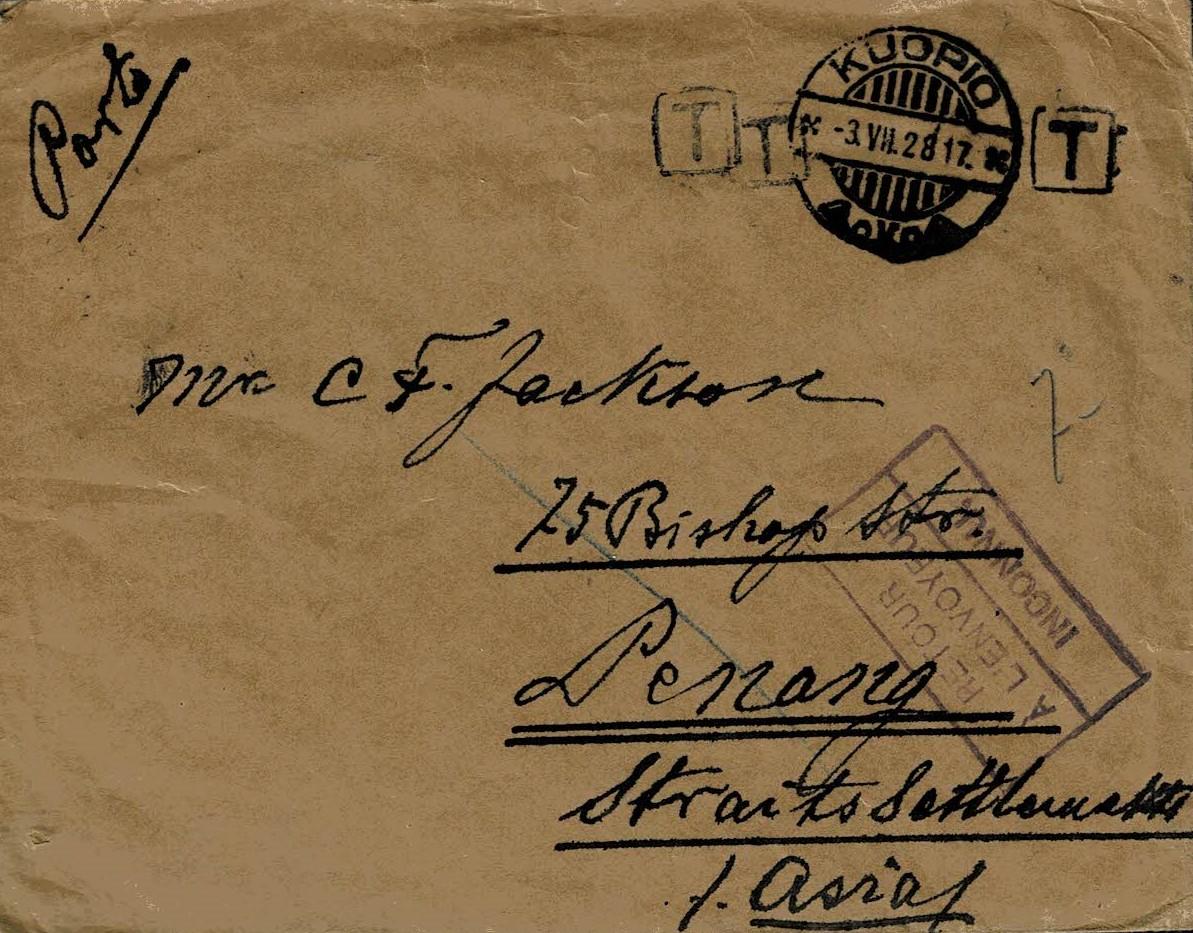 Porto
T T T
KUOPIO
-3.VII.28 17.
Mr C F. Jackson
75 Bishop Str.
Penang
Straits Settlements
/. Asia/
RETOUR
À L'ENVOYEUR
INCONNU
7-